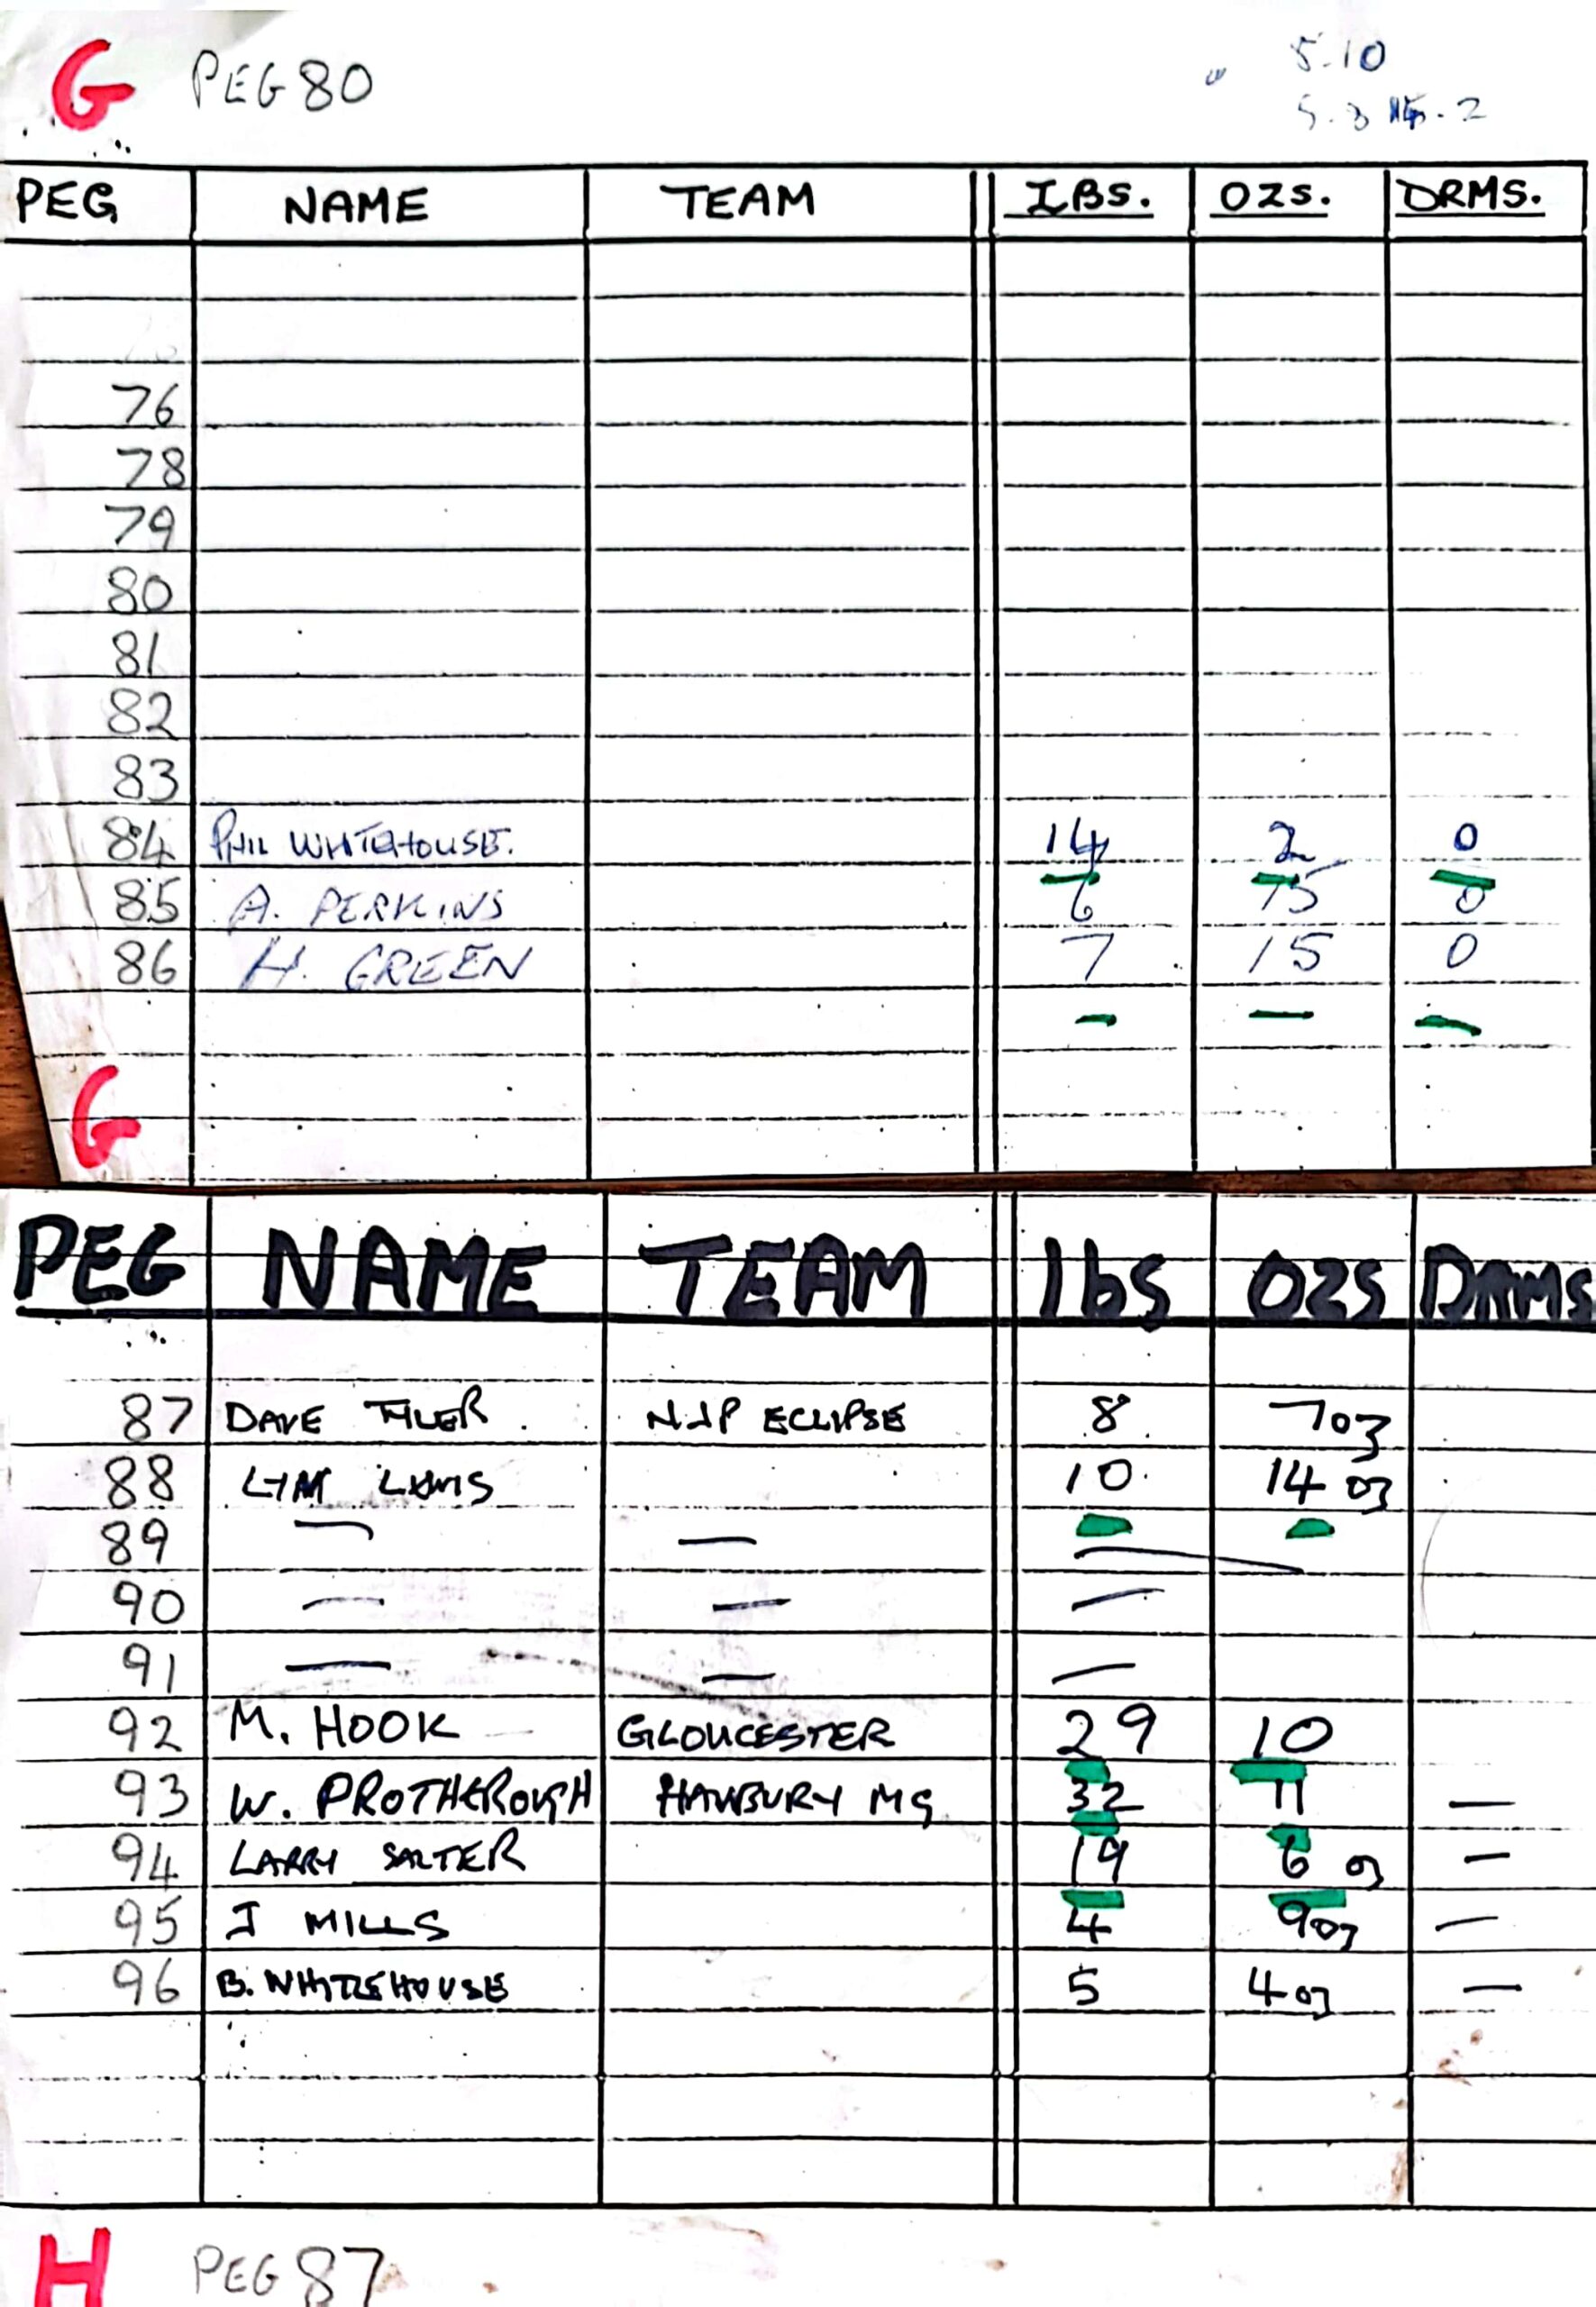 G PEG 80 5.10
5.3
PEG NAME TEAM LBS. OZS. DRMS.
76
78
79
80
81
82
83
84 PHIL WHITEHOUSE. 14 2 0
85 A. PERKINS 6 15 0
86 H. GREEN 7 15 0
G
PEG NAME TEAM lbs OZS DRMS
87 DAVE TYLER NJP ECLIPSE 8 7oz
88 10 14 oz
89 — —
90 — — —
91 — — —
92 M. HOOK — GLOUCESTER 29 10
93 W. PROTHEROUGH HANBURY MG 32 11 —
94 LARRY SALTER 19 6 oz —
95 J MILLS 4 9oz —
96 B. WHITEHOUSE 5 4oz —
H PEG 87